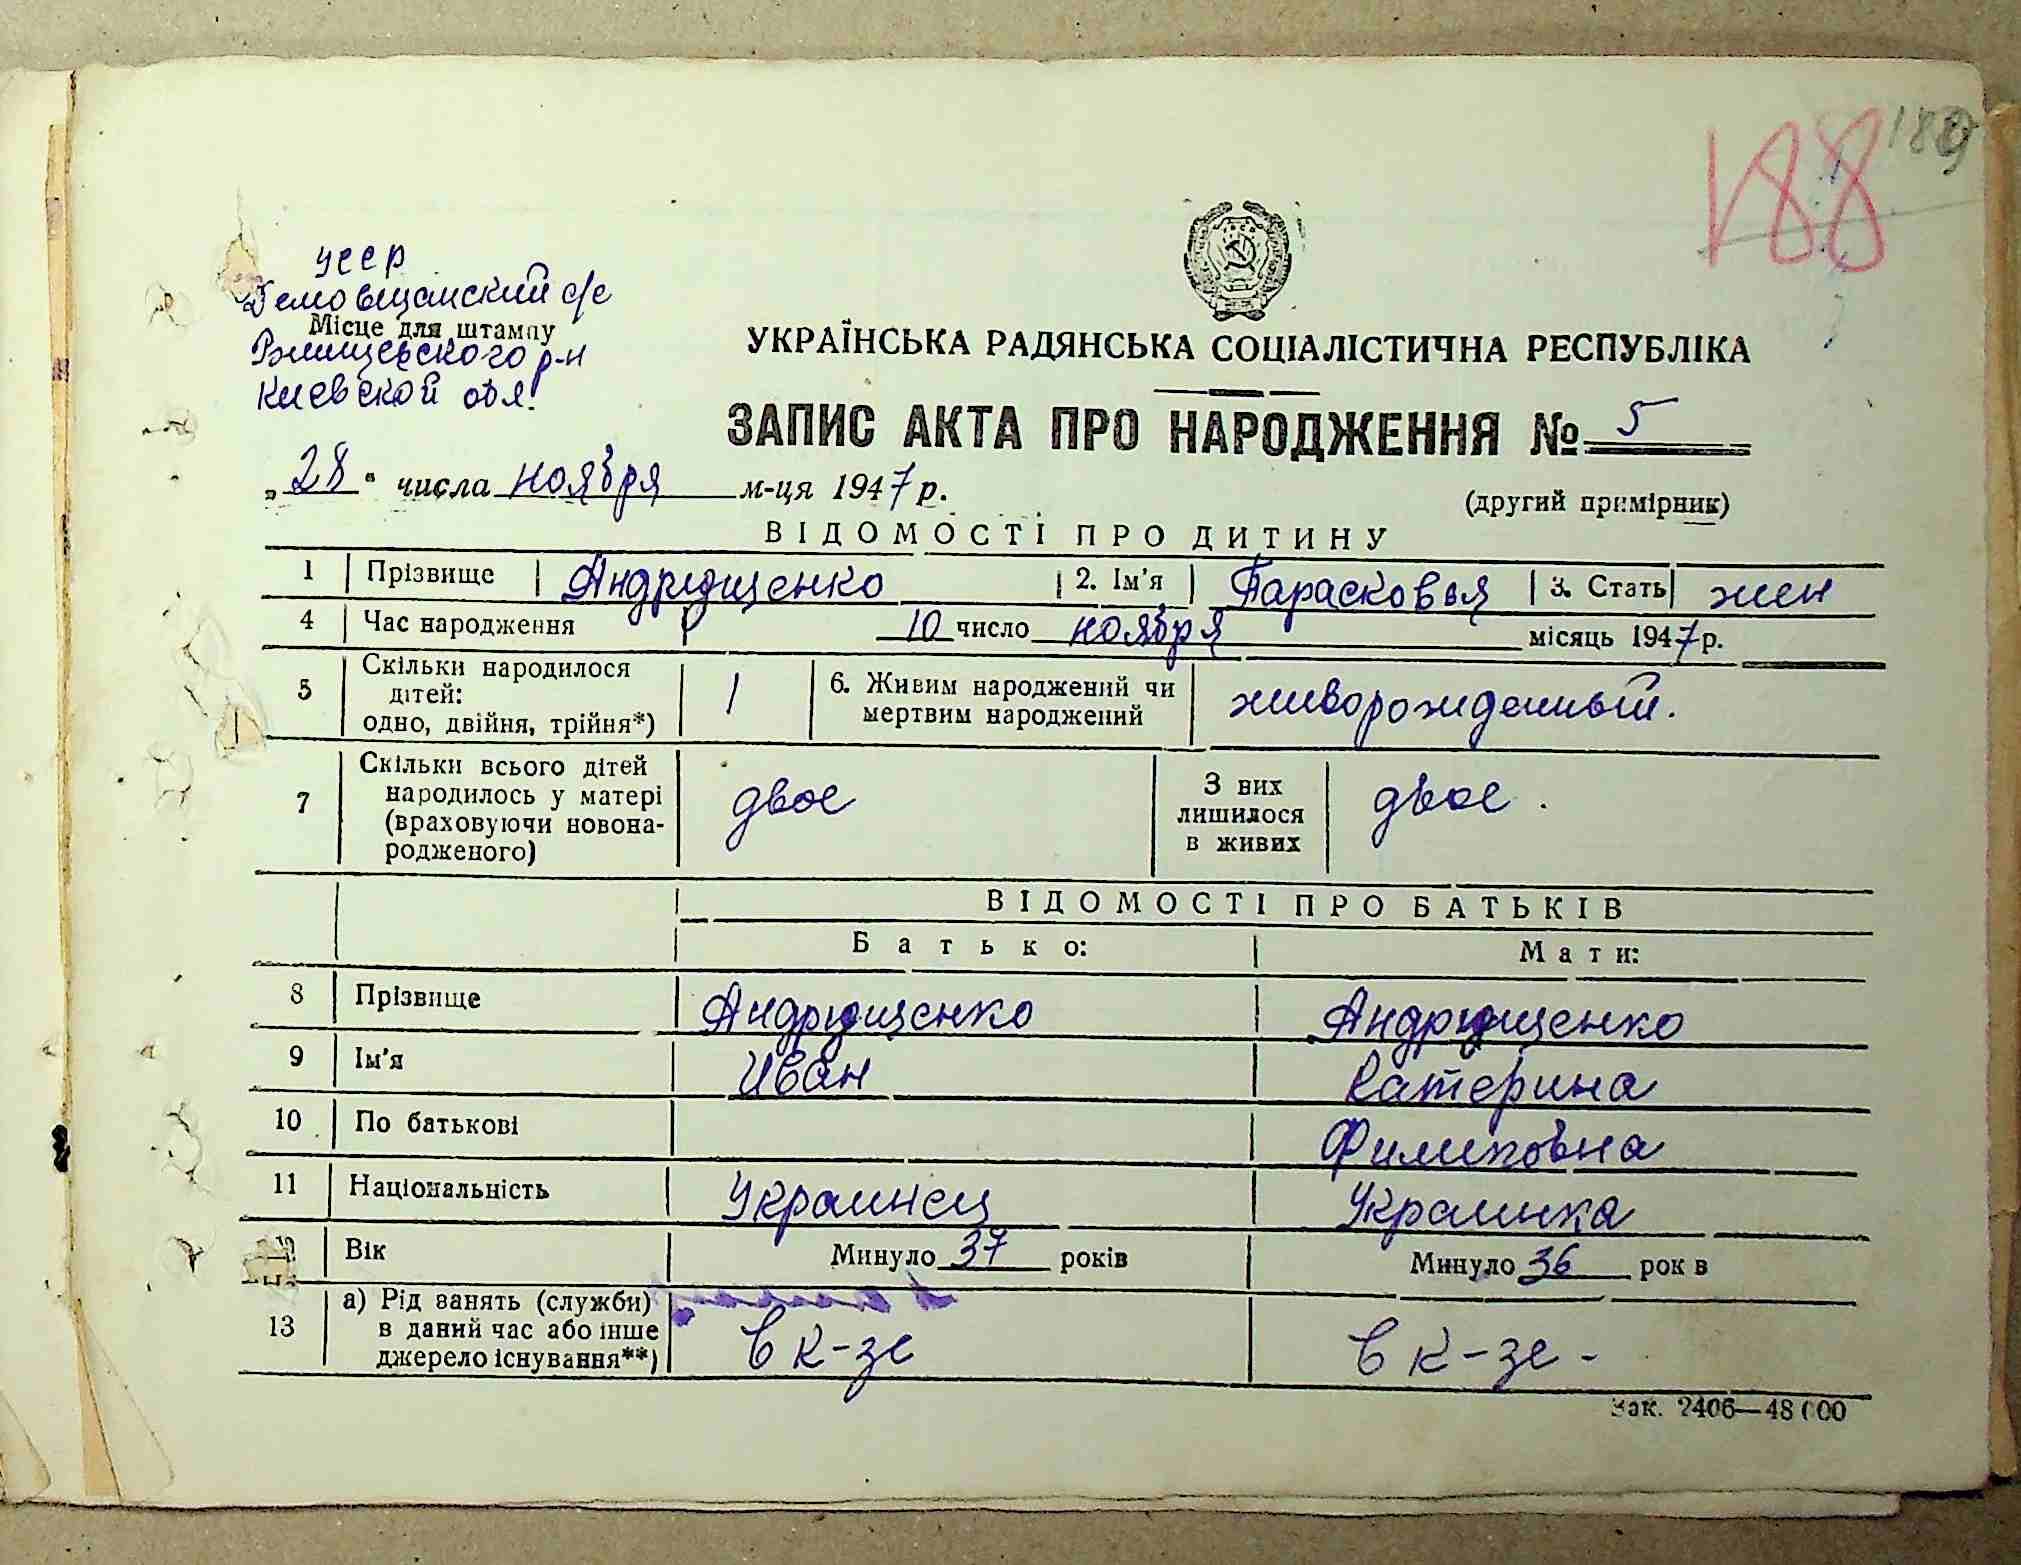 188 189
УССР
Демовщанский с/с
Місце для штампу
Ржищевского р-н
Киевской обл.
УКРАЇНСЬКА РАДЯНСЬКА СОЦІАЛІСТИЧНА РЕСПУБЛІКА
ЗАПИС АКТА ПРО НАРОДЖЕННЯ № 5
„28“ числа ноября м-ця 1947 р.
(другий примірник)
ВІДОМОСТІ ПРО ДИТИНУ
1 Прізвище Андрющенко 2. Ім'я Парасковья 3. Стать жен
4 Час народження 10 число ноября місяць 1947 р.
5 Скільки народилося дітей: одно, двійня, трійня*) 1 6. Живим народжений чи мертвим народжений живорожденный.
7 Скільки всього дітей народилось у матері (враховуючи новонародженого) двое З них лишилося в живих двое.
ВІДОМОСТІ ПРО БАТЬКІВ
Батько: Мати:
8 Прізвище Андрющенко Андрющенко
9 Ім'я Иван Катерина
10 По батькові Филиповна
11 Національність Украинец Украинка
12 Вік Минуло 37 років Минуло 36 років
13 а) Рід занять (служби) в даний час або інше джерело існування**) в к-зе в к-зе -
Зак. 2406—48000